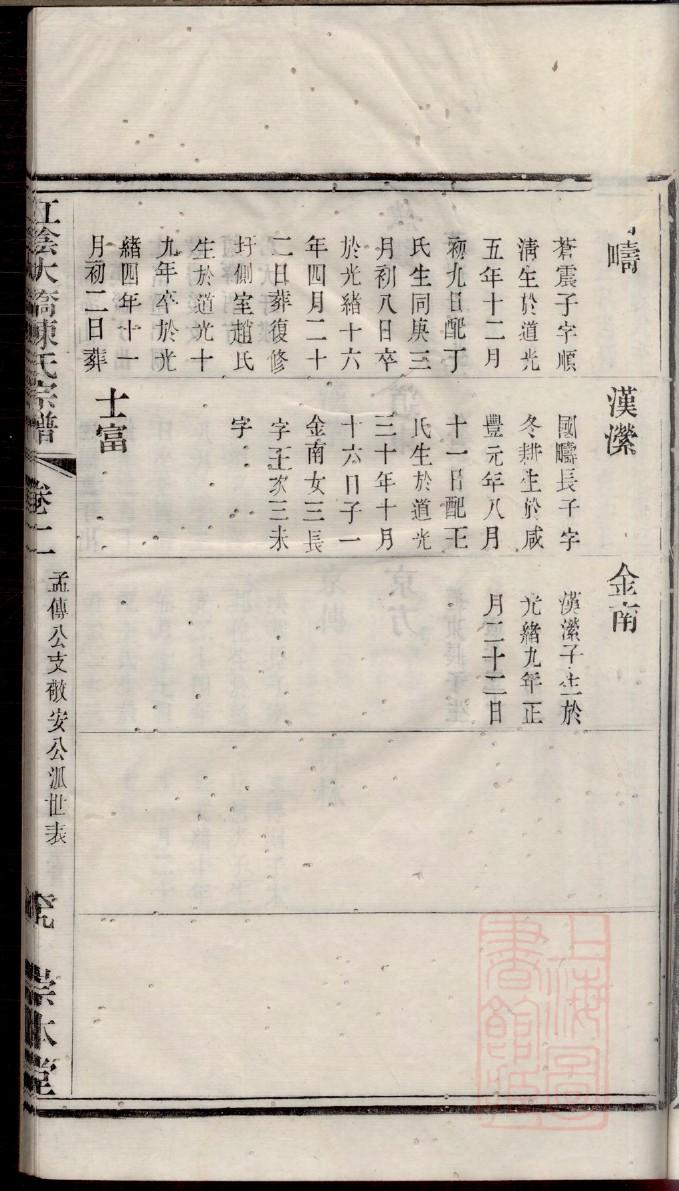 疇
蒼震子字順
淸生於道光
五年十二月
初九日配丁
氏生同庚三
月初八日卒
於光緒十六
年四月二十
二日葬復修
圩側室趙氏
生於道光十
九年卒於光
緒四年十一
月初二日葬
漢瀠
國疇長子字
冬耕生於咸
豐元年八月
十一日配王
氏生於道光
三十年十月
十六日子一
金南女三長
字王次三未
字
士富
金南
漢瀠子生於
光緒九年正
月二十二日
江陰大橋陳氏宗譜
卷二
孟傳公支敬安公派世表
崇本堂
上海圖書館藏